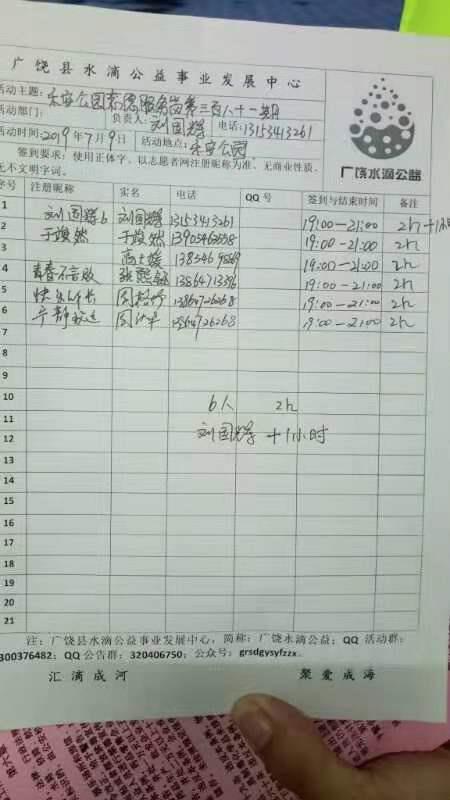 广饶县水滴公益事业发展中心
活动主题：乐安公园志愿服务岗第三百八十一期
活动部门： 负责人：刘国辉 电话：13153413261
活动时间：2019年7月9日 活动地点：乐安公园
签到要求：使用正体字，以志愿者网注册昵称为准，无商业性质，
无不文明字词。
广饶水滴公益
序号 注册昵称 实名 电话 QQ号 签到与结束时间 备注
1 刘国辉6 刘国辉 13153413261 19:00－21:00 2h+1小时
2 于焕然 于焕然 19:00－21:00 2h
3 19:00－21:00 2h
4 19:00－21:00 2h
5 13864726268 19:00－21:00 2h
6 宁静致远 13864726268 19:00－21:00 2h
7
8
9
10 6人 2h
11 刘国辉 +1小时
12
13
14
15
16
17
18
19
20
21
注：广饶县水滴公益事业发展中心，简称：广饶水滴公益；QQ 活动群：
300376482；QQ公告群：320406750；公众号：grsdgysyfzzx。
汇滴成河 聚爱成海